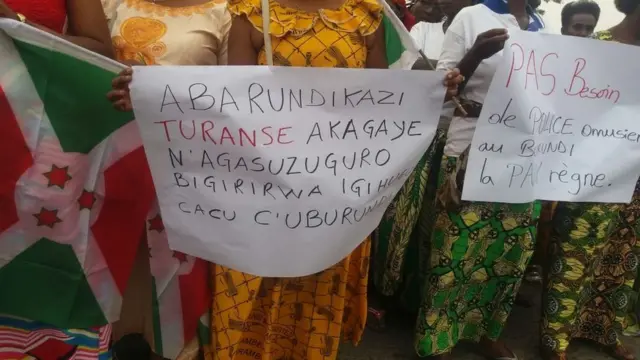 ABARUNDIKAZI
TURANSE AKAGAYE
N'AGASUZUGURO
BIGIRIRWA
CACU C'UBURUNDI
PAS Besoin
de POLICE
au BURUNDI
la PAIX règne.